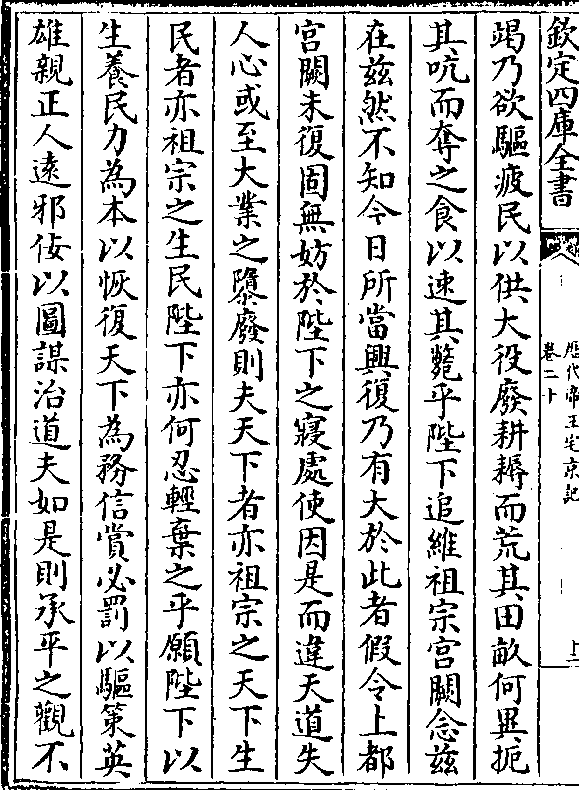 欽定四庫全書
歷代帝王宅京記
卷二十
竭乃欲驅疲民以供大役廢耕耨而荒其田畝何異扼
其吭而奪之食以速其斃乎陛下追維祖宗宮闕念兹
在兹然不知今日所當興復乃有大於此者假令上都
宮闕未復固無妨於陛下之寢處使因是而違天道失
人心或至大業之隳廢則夫天下者亦祖宗之天下生
民者亦祖宗之生民陛下亦何忍輕棄之乎願陛下以
生養民力為本以恢復天下為務信賞必罰以驅策英
雄親正人逺邪佞以圖謀治道夫如是則承平之觀不